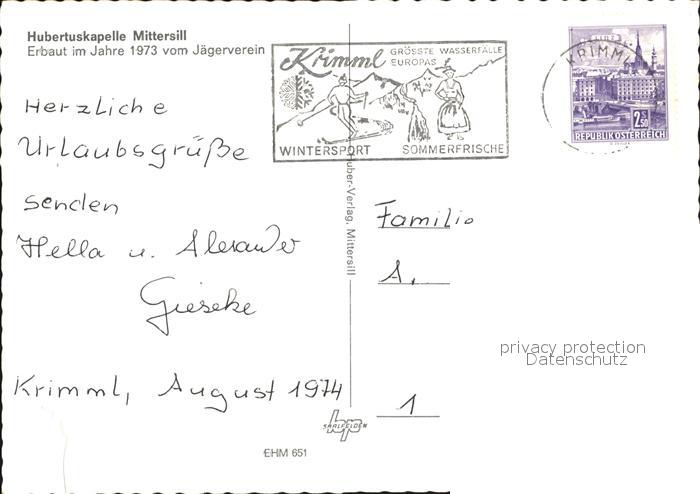 Hubertuskapelle Mittersill
Erbaut im Jahre 1973 vom Jägerverein
Krimml
GRÖSSTE WASSERFÄLLE
EUROPAS
WINTERSPORT SOMMERFRISCHE
KRIMML
2.50
REPUBLIK ÖSTERREICH
Herzliche
Urlaubsgrüße
senden
Hella u. Alexander
Gieseke
Krimml, August 1974
Huber-Verlag, Mittersill
Familie
A.
1
privacy protection
Datenschutz
SAALFELDEN
EHM 651